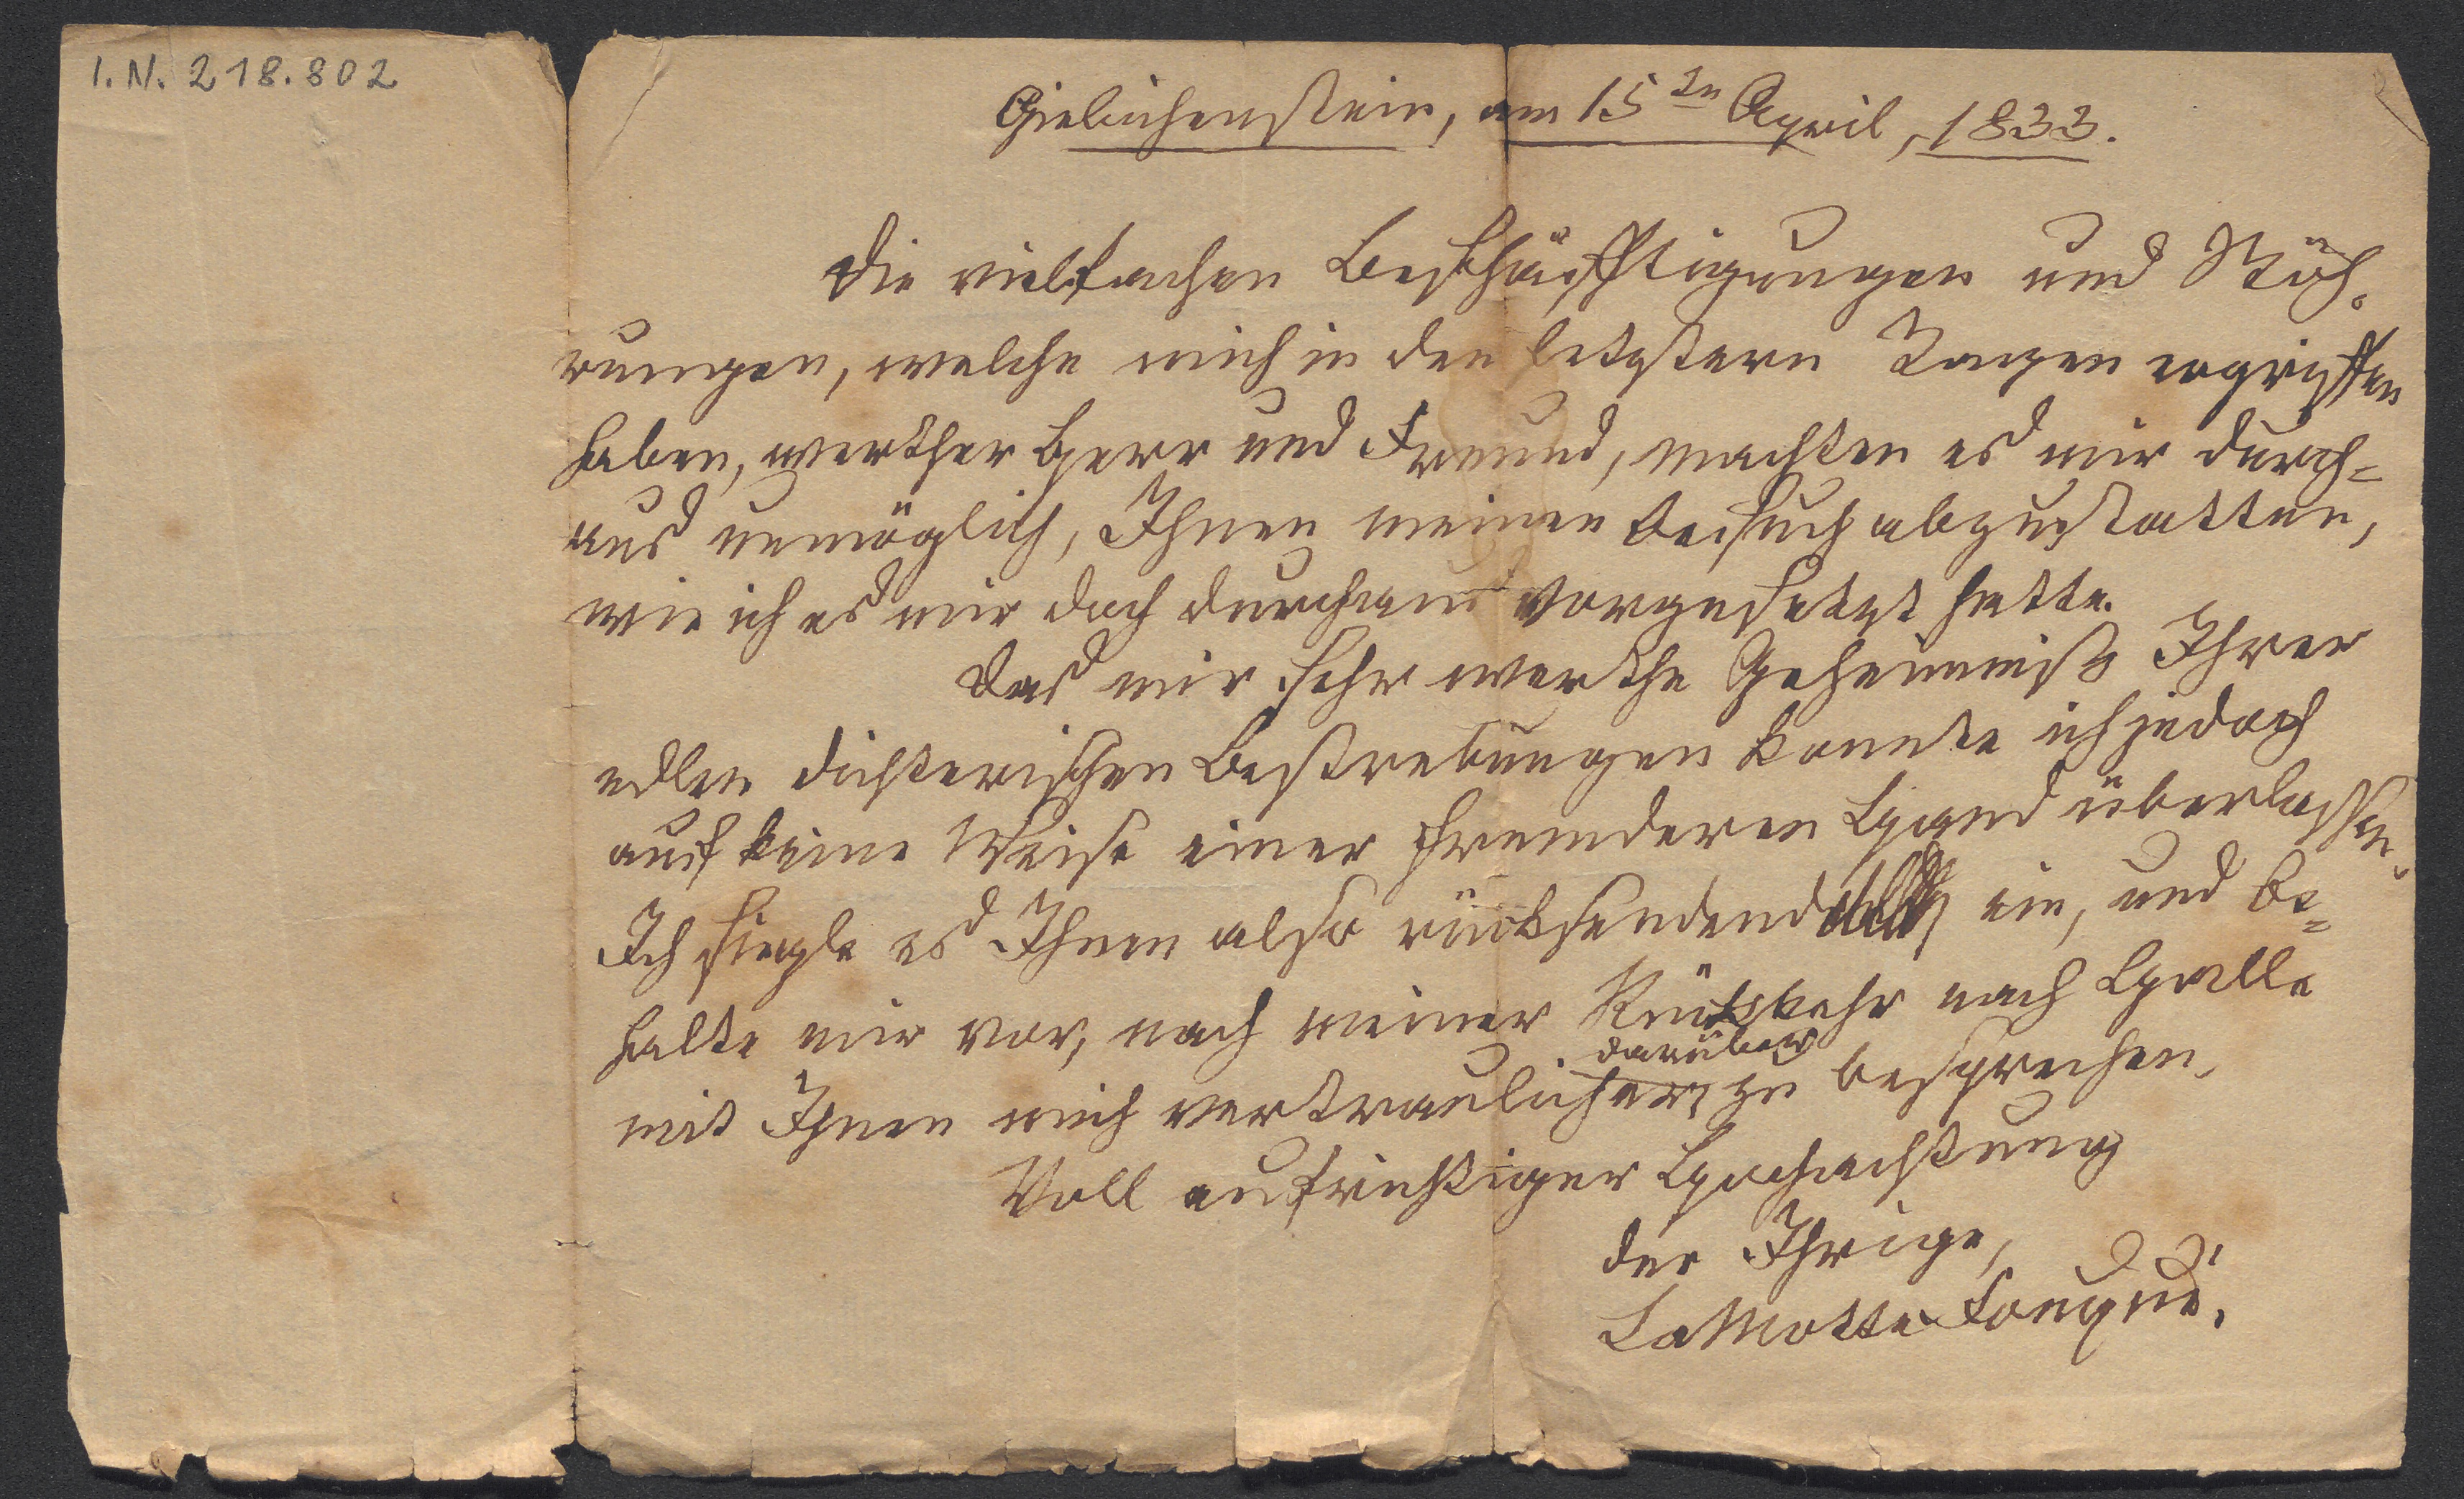 I.N. 218.802
Giebichenstein, am 15ten April, 1833.
Die vielfachen Beschäfftigungen und Stöh-
rungen, welche mich in den letztern Tagen ergriffen
haben, werther Herr und Freund, machten es mir durch=
aus unmöglich, Ihnen meinen Besuch abzustatten,
wie ich es mir doch durchaus vorgesetzt hatte.
Das mir sehr werthe Geheimniß Ihrer
edlen dichterischen Bestrebungen konnte ich jedoch
auf keine Weise einer fremderen Hand überlassen.
Ich siegle es Ihnen also rücksendend ein, und be=
halte mir vor, nach meiner Rückkehr nach Halle
darüber
mit Ihnen mich vertraulicher zu besprechen.
Voll aufrichtiger Hochachtung
der Ihrige,
LaMotte Fouqué.